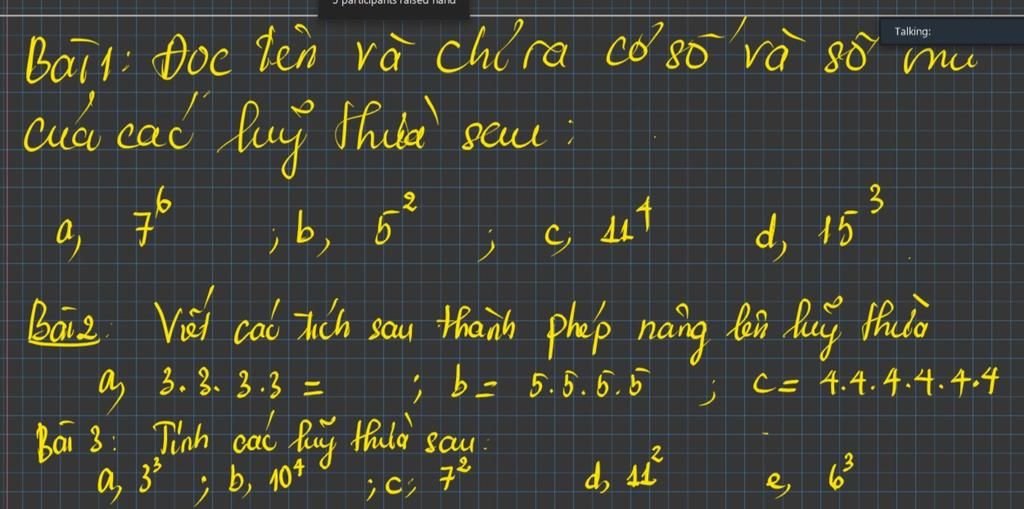 5 participants raised hand
Talking:
Bài 1: Đọc tên và chỉ ra cơ số và số mũ
của các luỹ thừa sau:
a, 7^6 ; b, 5^2 ; c, 11^4 d, 15^3
Bài 2. Viết các tích sau thành phép nâng lên luỹ thừa
a, 3.3.3.3 = ; b = 5.5.5.5 ; c = 4.4.4.4.4.4
Bài 3: Tính các luỹ thừa sau:
a, 3^3 ; b, 10^4 ; c, 7^2 d, 11^2 e, 6^3